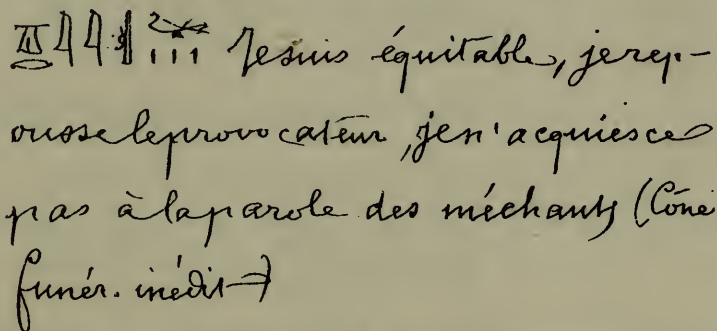 Je suis équitable, je rep-
ousse le provocateur, je n'acquiesce
pas à la parole des méchants (Cône
funér. inédit